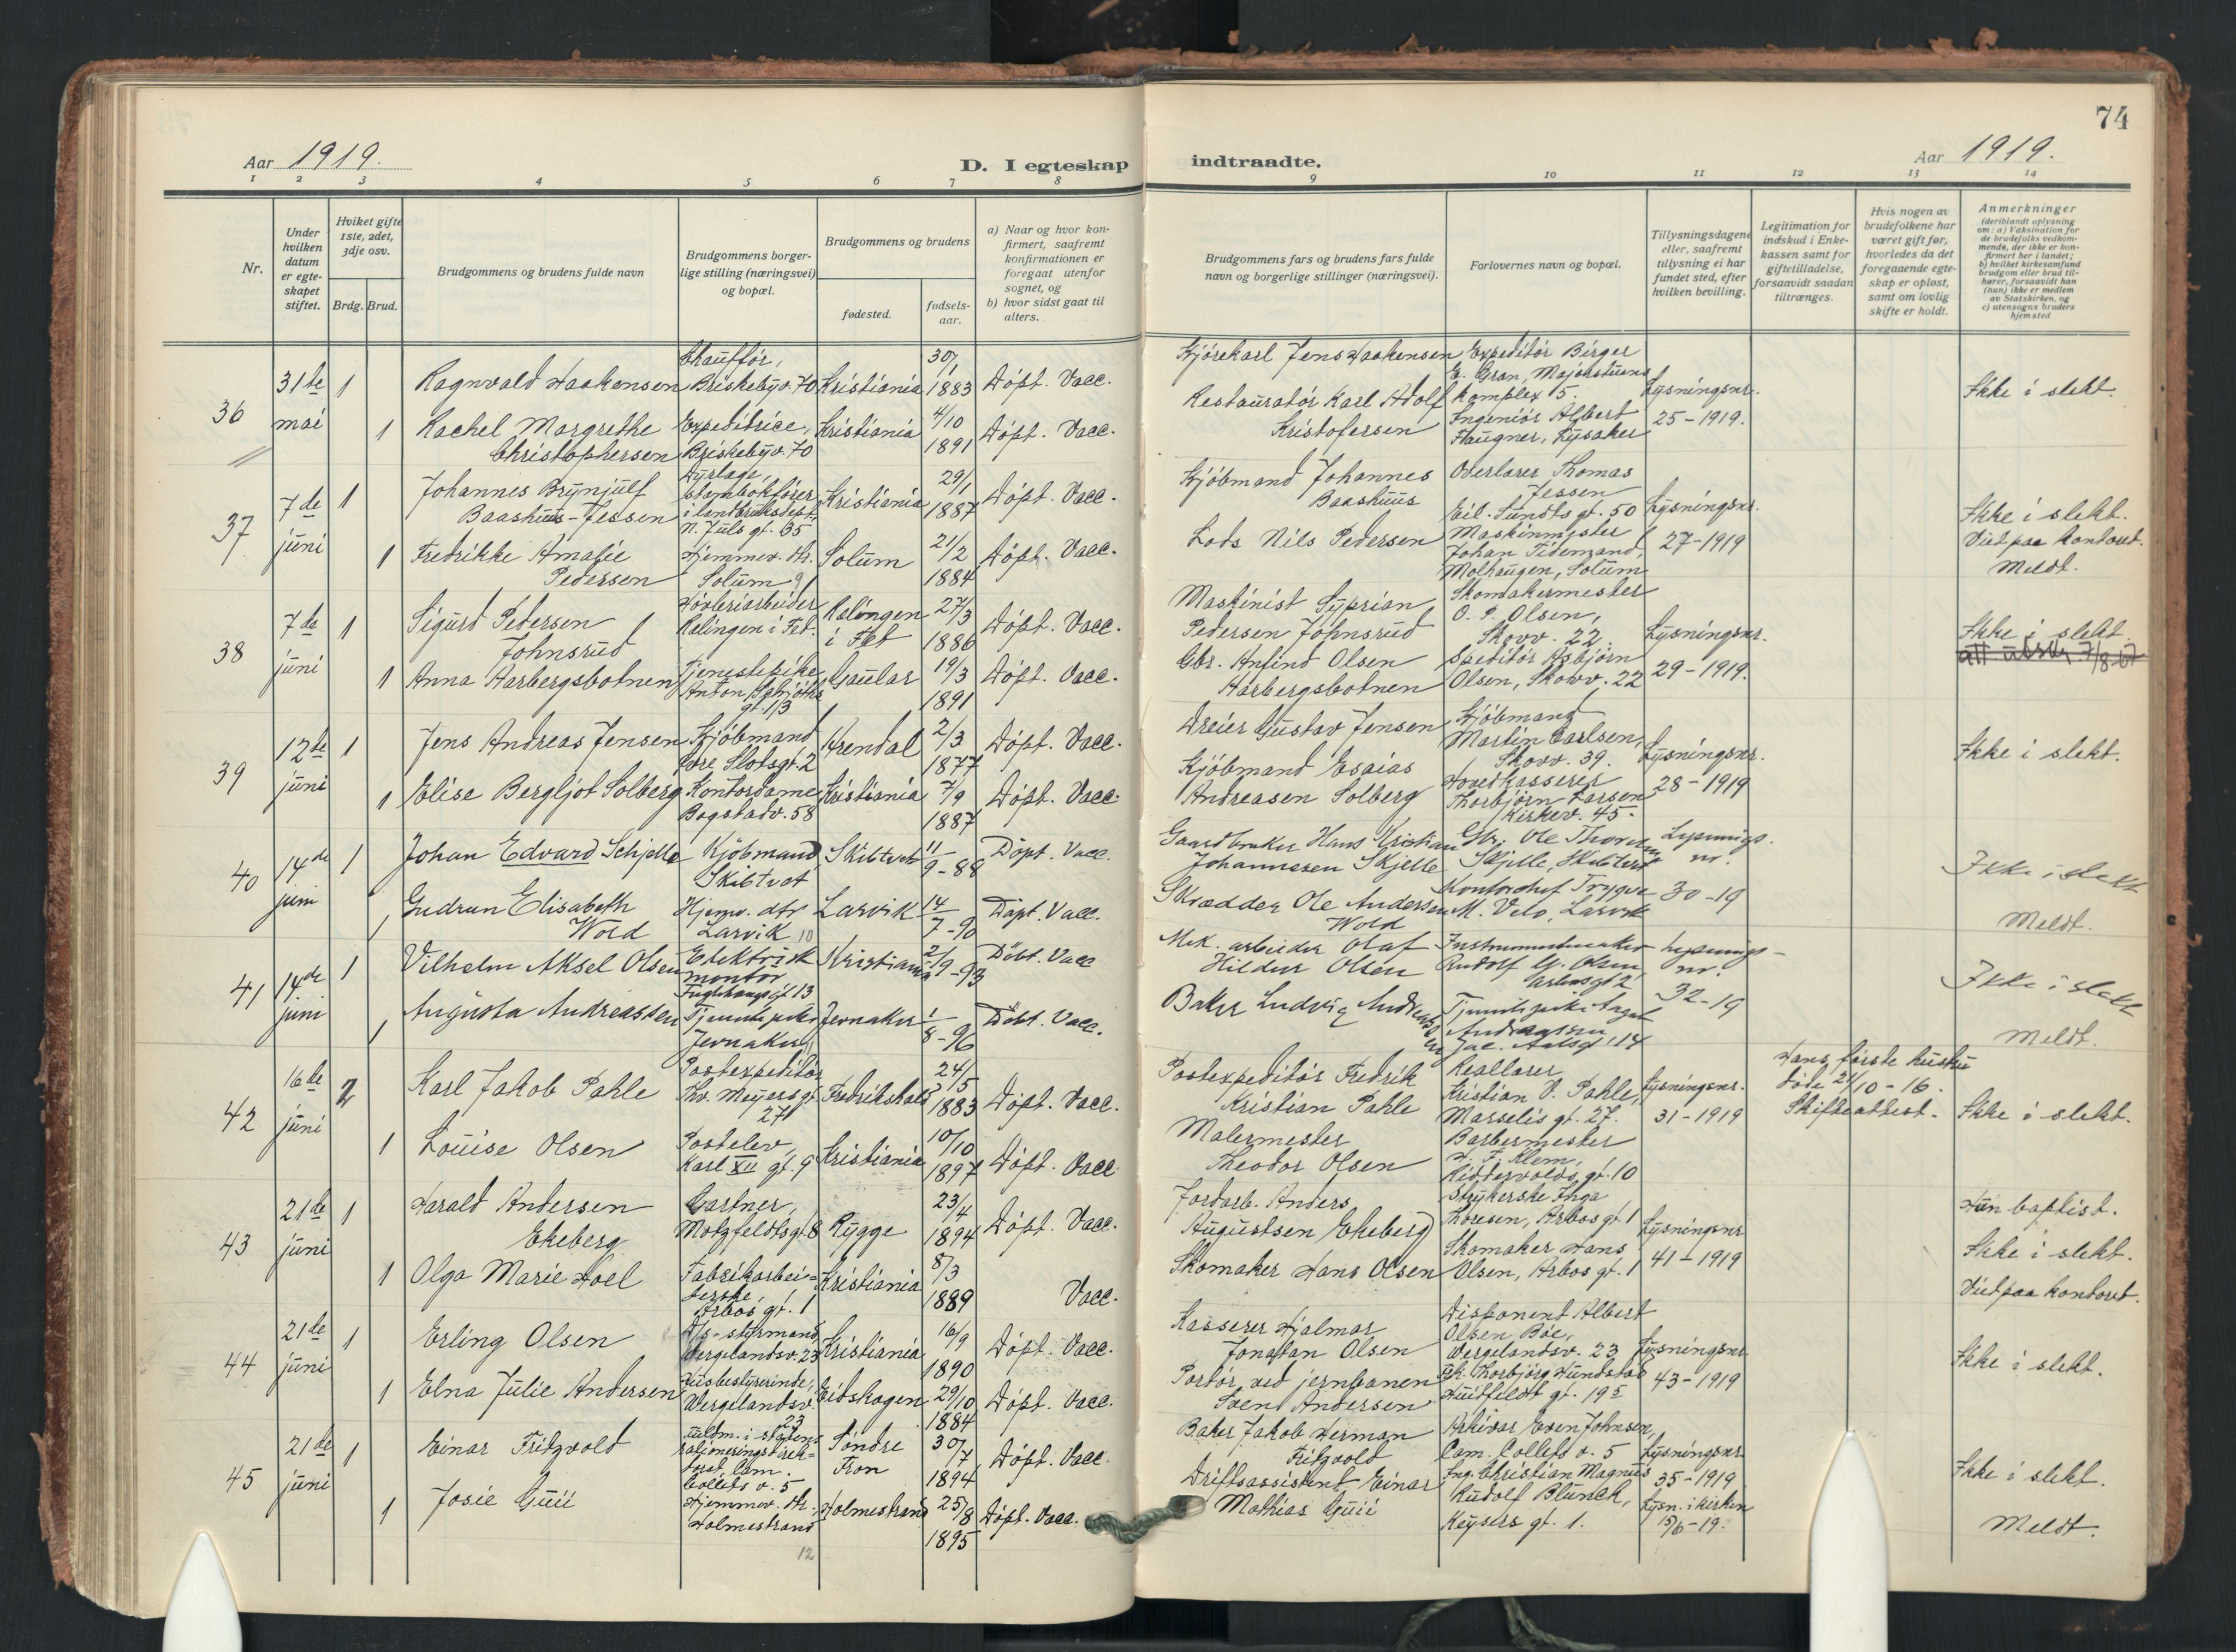 74
Aar 1919.
D. I egteskap indtraadte.
Aar 1919.
1 2 3 4 5 6 7 8 9 10 11 12 13 14
Nr.
Under hvilken datum er egteskapet stiftet.
Hviket gifte 1ste, 2det, 3dje osv.
Brdg. Brud.
Brudgommens og brudens fulde navn
Brudgommens borgerlige stilling (næringsvei) og bopæl.
Brudgommens og brudens
fødested.
fødselsaar.
a) Naar og hvor konfirmert, saafremt konfirmationen er foregaat utenfor sognet, og
b) hvor sidst gaat til alters.
Brudgommens fars og brudens fars fulde navn og borgerlige stillinger (næringsvei).
Forlovernes navn og bopæl.
Tillysningsdagene eller, saafremt tillysning ei har fundet sted, efter hvilken bevilling.
Legitimation for indskud i Enkekassen samt for giftetilladelse, forsaavidt saadan tiltrænges.
Hvis nogen av brudefolkene har været gift før, hvorledes da det foregaaende egteskap er opløst, samt om lovlig skifte er holdt.
Anmerkninger (deriblandt oplysning om: a) Vaksination for de brudefolks vedkommende, der ikke er konfirmert her i landet; b) hvilket kirkesamfund brudgom eller brud tilhører, forsaavidt han (hun) ikke er medlem av Statskirken, og c) utensogns bruders hjemsted
36
31te mai
1 Ragnvald Haakensen
Chauffør, Briskebyv. 70
Kristiania
30/1 1883
Døpt. Vacc.
Kjørekarl Jens Haakensen
Expeditør Birger E. Gran, Majorstuens komplex 5.
Lysningsnr. 25-1919.
Ikke i slekt.
1 Rachel Margrethe Christophersen
Expeditrice, Briskebyv. 70
Kristiania
4/10 1891
Døpt. Vacc.
Restauratør Karl Adolf Kristofersen
Ingeniør Albert Haugner, Lysaker
37
7de juni
1 Johannes Brynjulf Baashuus-Jessen
Dyrlæge, stambokfører i landbruksdept. N. Juls gt. 35
Kristiania
29/1 1887
Døpt. Vacc.
Kjøbmand Johannes Baashuus
Overlærer Thomas Jessen Eil. Sundts gt. 50
Lysningsnr. 27-1919
Ikke i slekt.
Viet paa kontoret.
Meldt.
1 Fredrikke Amalie Pedersen
Hjemmev. dtr. Solum 9
Solum
21/2 1884
Døpt. Vacc.
Lods Nils Pedersen
Maskinmester Johan Tidemand, Molhaugen, Solum
38
7de juni
1 Sigurd Pedersen Johnsrud
Høvleriarbeider Ralingen i Fet.
Ralingen i Fet
27/3 1886
Døpt. Vacc.
Maskinist Syprian Pedersen Johnsrud
Skomakermester O. P. Olsen, Skovv. 22.
Lysningsnr. 29-1919.
Ikke i slekt.
att utskr. 7/8 57
1 Anna Aarbergsbotnen
Tjenestepike Anton Schjøths gt. 13
Gaular
19/3 1891
Døpt. Vacc.
Gbr. Anfind Olsen Aarbergsbotnen
Speditør Asbjørn Olsen, Skovv. 22
39
12te juni
1 Jens Andreas Jensen
Kjøbmand Øvre Slotsgt. 2
Arendal
2/3 1877
Døpt. Vacc.
Dreier Gustav Jensen
Kjøbmand Martin Carlsen, Skovv. 39.
Lysningsnr. 28-1919
Ikke i slekt.
1 Elise Bergljot Solberg
Kontordame Bogstadv. 58
Kristiania
7/9 1887
Døpt. Vacc.
Kjøbmand Esaias Andreasen Solberg
Hovedkasserer Thorbjørn Larsen Kirkev. 45.
40
14de juni
1 Johan Edvard Schjelle
Kjøbmand Skibtvet
Skibtvet
11/9-88
Døpt. Vacc.
Gaardbruker Hans Kristian Johannesen Skjelle
Gbr. Ole Skjelle, Skibtvet
Lysnings. nr. 30-19
Ikke i slekt
Meldt.
1 Gudrun Elisabeth Wold
Hjemv. dtr. Larvik 10
Larvik
14/7-90
Døpt. Vacc.
Skrædder Ole Andersen Wold
Kontorchef Trygve M. Velo, Larvik
41
14de juni
1 Vilhelm Aksel Olsen
Elektrisk montør Fuglehaugsgt 13
Kristiania
2/9-93
Døbt. Vacc
Mek. arbeider Olaf Hildur Olsen
Instrumentmaker Rudolf Olsen, Arbosgt 2
Lysnings- nr. 32-19
Ikke i slekt
Meldt.
1 Augusta Andreassen
Tjenestepike Jevnaker 11
Jevnaker
1/8-96
Døbt. Vacc.
Baker Ludvig Andreassen
Tjenestepike Aagot Andreassen Jac. Aalsgt 14
42
16de juni
2 Karl Jakob Pahle
Postexpeditør Thv. Meyersgt 27
Fredrikshald
24/5 1883
Døpt. Vacc.
Postexpeditør Fredrik Kristian Pahle
Reallærer Kristian V. Pahle, Marselis gt. 27.
Lysningsnr. 31-1919
Hans første hustru døde 21/10-16. Skifteattest.
Ikke i slekt.
1 Louise Olsen
Postelev, Karl XII gt. 9
Kristiania
10/10 1897
Døpt. Vacc.
Malermester Theodor Olsen
Barbermester H. F. Klem, Riddervolds gt. 10
43
21de juni
1 Harald Andersen Ekeberg
Gartner, Motzfeldtsgt. 8
Rygge
23/4 1894
Døpt. Vacc.
Jordarb. Anders Augustsen Ekeberg
Strykerske Inga Thoresen, Arbosgt. 1
Lysningsnr 41-1919
Hun baptist.
Ikke i slekt.
Viet paa kontoret.
1 Olga Marie Hoel
Fabrikarbeiderske, Arbos gt. 1
Kristiania
8/3 1889
Vacc.
Skomaker Hans Olsen
Skomaker Hans Olsen, Arbos gt. 1
44
21de juni
1 Erling Olsen
D/s-styrmand Wergelandsv. 23
Kristiania
16/9 1890
Døpt. Vacc.
Kasserer Hjalmar Jonatan Olsen
Disponent Albert Olsen Bøe, Wergelandsv. 23
Lysningsnr. 43-1919
Ikke i slekt.
1 Elna Julie Andersen
Husbestyrerinde, Wergelandsv. 23
Eidskogen
29/10 1884
Døpt. Vacc.
Portør ved jernbanen Sven Andersen
Frk. Thorbjørg Hundstad Huitfeldt gt. 19 5
45
21de juni
1 Einar Fritzvold
fuldm. i statens rationeringsdirektorat, Cam. Colletts v. 5
Søndre Fron
30/7 1894
Døpt. Vacc.
Baker Jakob Herman Fritzvold
Arkivar Even Johnsen, Cam. Colletts v. 5
Lysningsnr 35-1919
Lysn. i kirken 15/6-19.
Ikke i slekt.
Meldt.
1 Josie Guii
Hjemmev. dtr. Holmestrand
Holmestrand
25/8 1895
Døpt. Vacc.
Driftsassistent Einar Mathias Guii
Ing. Christian Magnus Rudolf Blunck, Keysers gt. 1.
12